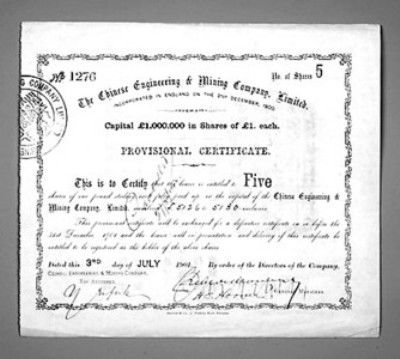 No 1276
No. of Shares 5
The Chinese Engineering & Mining Company, Limited.
INCORPORATED IN ENGLAND ON THE 21st DECEMBER, 1900.
Capital £1,000,000 in Shares of £1. each.
PROVISIONAL CERTIFICATE.
This is to Certify that the bearer is entitled to Five
shares of one pound sterling each fully paid up, in the capital of the Chinese Engineering &
Mining Company, Limited, numbered 5126 5130 inclusive.
This provisional certificate will be exchanged for a definitive certificate on or before the
31st December 1901 and the bearer will on presentation and delivery of this certificate be
entitled to be registered as the holder of the above shares.
Dated this 3RD day of JULY 1901. By order of the Directors of the Company.
CHINESE ENGINEERING & MINING COMPANY,